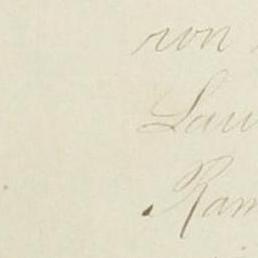 ron
Lau
Ram